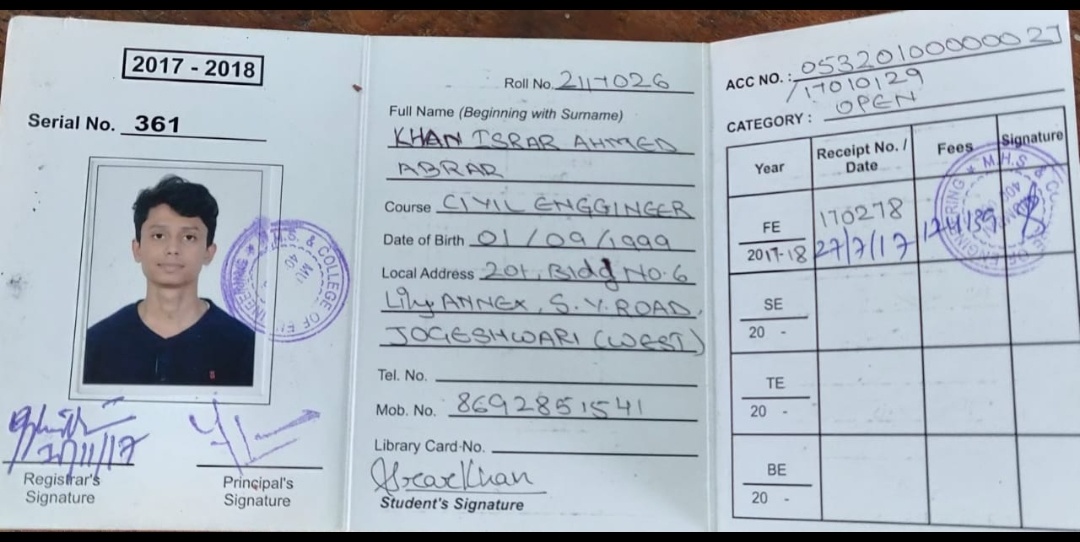 2017 - 2018
Serial No. 361
Registrar's Signature
Principal's Signature
Roll No. 2117026
Full Name (Beginning with Surname)
KHAN ISRAR AHMED
ABRAR
Course CIVIL ENGGINGER
Date of Birth 01/09/1999
Local Address 201, Bldg No. 6
Lily ANNEX, S.V. ROAD,
JOGESHWARI (WEST)
Tel. No.
Mob. No. 8692851541
Library Card No.
Israr Khan
Student's Signature
ACC NO. :
/17010129
CATEGORY : OPEN
Year Receipt No. / Date Fees Signature
FE 170278
2017-18 27/7/17
SE
20 -
TE
20 -
BE
20 -
M.H.S. & COLLEGE OF ENGINEERING